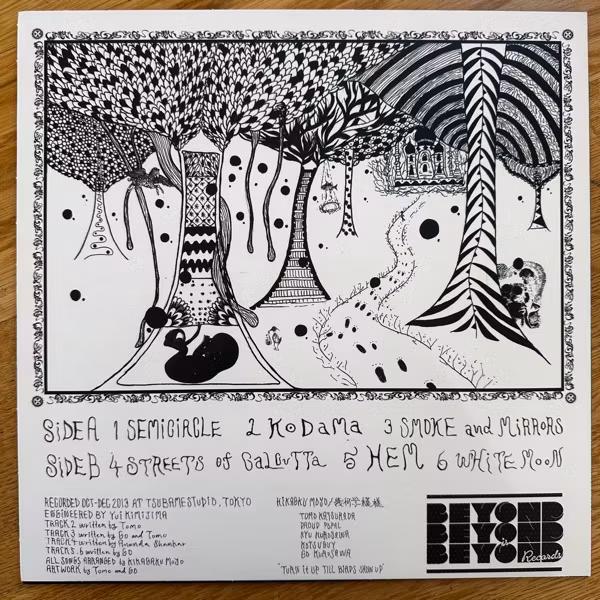 SIDE A 1 SEMICIRCLE 2 KODAMA 3 SMOKE and MIRRORS
SIDE B 4 STREETS of CALCUTTA 5 HEM 6 WHITE MOON
RECORDED OCT-DEC 2013 AT TSUBAMESTUDIO, TOKYO
ENGINEERED BY YUI KIMIJIMA
TRACK 2 written by Tomo
TRACK 3 written by GO and Tomo
TRACK 4 written by Ananda Shankar
TRACKS. 6 written by GO
ALL SONGS ARRANGED by KIKAGAKU MOYO
ARTWORK by Tomo and GO
KIKAGAKU MOYO/幾何学模様
TOMO KATSURADA
DAOUD POPAL
RYU KUROSAWA
KOTSUGUY
GO KUROSAWA
"TURN it UP TILL BIRDS SHOW UP"
BEYOND
BEYOND
is
BEYOND
Records